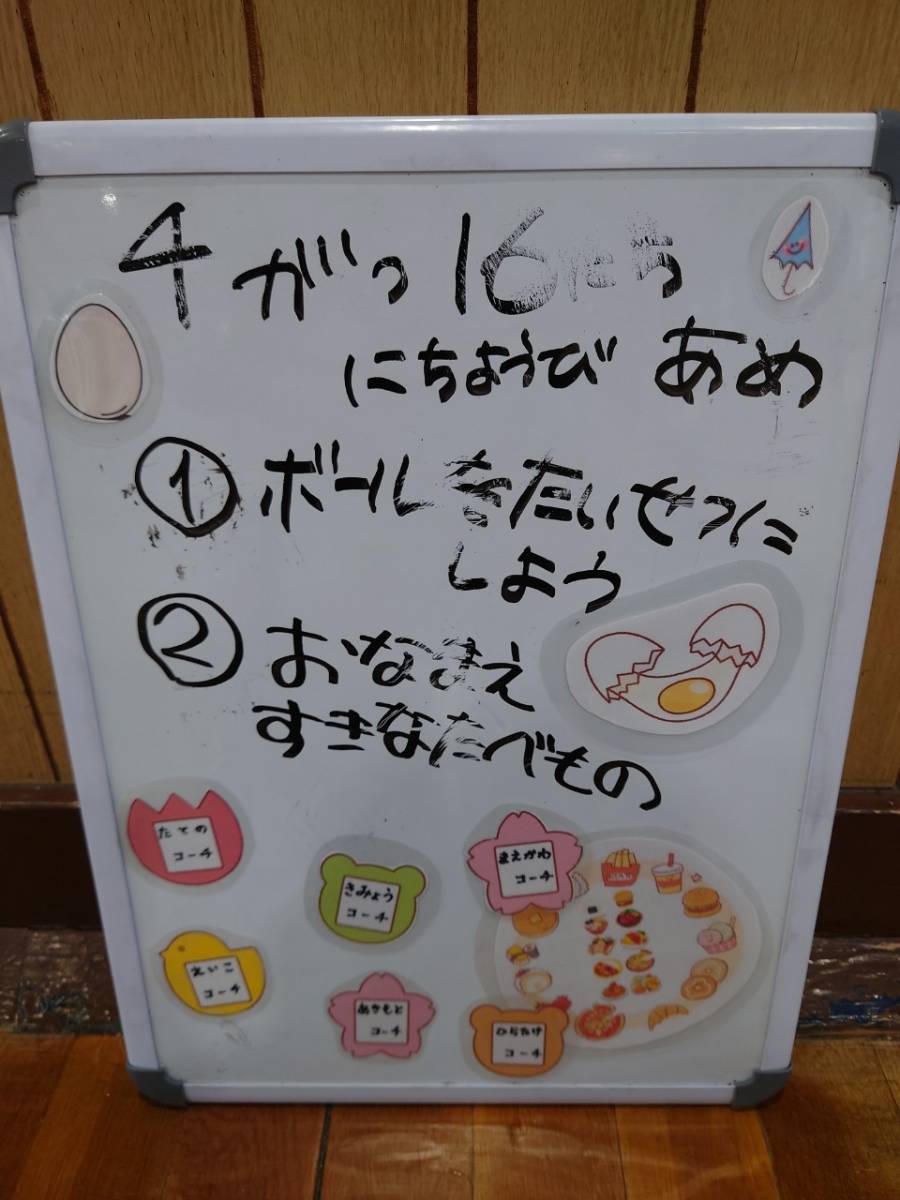 4がつ16にち
にちようび あめ
① ボールをたいせつに
しよう
② おなまえ
すきなたべもの
たての
コーチ
きみょう
コーチ
まえかわ
コーチ
えいこ
コーチ
あきもと
コーチ
ひらたけ
コーチ